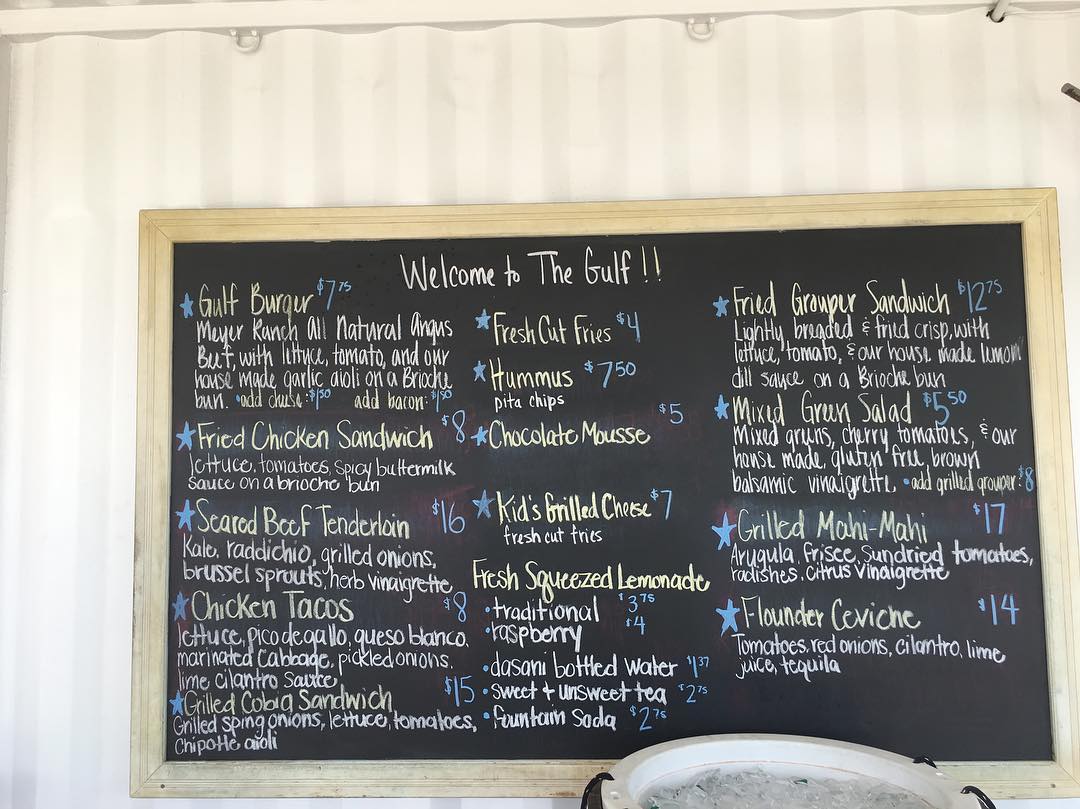 Welcome to The Gulf !!
Gulf Burger $7.75
Meyer Ranch All Natural Angus
Beef, with lettuce, tomato, and our
house made garlic aioli on a Brioche
bun. • add cheese: $1.50 add bacon: $1.50
Fried Chicken Sandwich $8
lettuce, tomatoes, spicy buttermilk
sauce on a brioche bun
Seared Beef Tenderloin $16
Kale, raddichio, grilled onions,
brussel sprouts, herb vinaigrette
Chicken Tacos $8
lettuce, pico de gallo, queso blanco,
marinated cabbage, pickled onions,
lime cilantro sauce
Grilled Cobia Sandwich $15
Grilled sping onions, lettuce, tomatoes,
Chipotle aioli
Fresh Cut Fries $4
Hummus $7.50
pita chips
Chocolate Mousse $5
Kid's Grilled Cheese $7
fresh cut fries
Fresh Squeezed Lemonade
• traditional $3.75
• raspberry $4
• dasani bottled water $1.37
• sweet + unsweet tea $2.75
• fountain soda $2.75
Fried Grouper Sandwich $12.75
Lightly breaded & fried crisp, with
lettuce, tomato, & our house made lemon
dill sauce on a Brioche bun
Mixed Green Salad $5.50
Mixed greens, cherry tomatoes, & our
house made, gluten free, brown
balsamic vinaigrette • add grilled grouper: $8
Grilled Mahi-Mahi $17
Arugula, frisee, sundried tomatoes,
radishes. Citrus vinaigrette
Flounder Ceviche $14
Tomatoes, red onions, cilantro, lime
juice, tequila